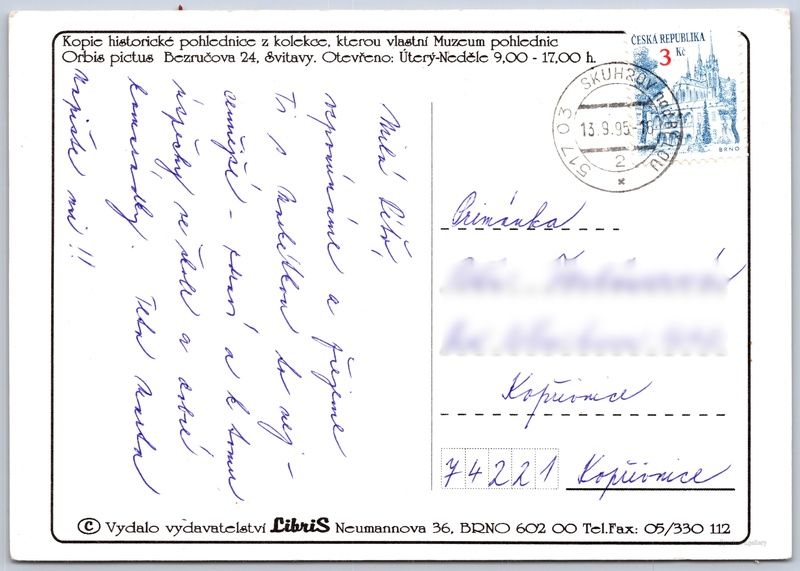 Kopie historické pohlednice z kolekce, kterou vlastní Muzeum pohlednic
Orbis pictus Bezručova 24, Svitavy. Otevřeno: Úterý-Neděle 9,00 - 17,00 h.
ČESKÁ REPUBLIKA
3 Kč
BRNO
SKUHROV nad BĚLOU
13.9.95-18
517 03
2
Milá
vzpomínáme a přejeme
Ti s Markétkou to nej-
cennější - zdraví a k tomu
úspěchy ve škole a dobré
kamarádky. Teta Marta
Napište mi!!
Primánka
Kopřivnice
74221 Kopřivnice
© Vydalo vydavatelství LibriS Neumannova 36, BRNO 602 00 Tel.Fax: 05/330 112